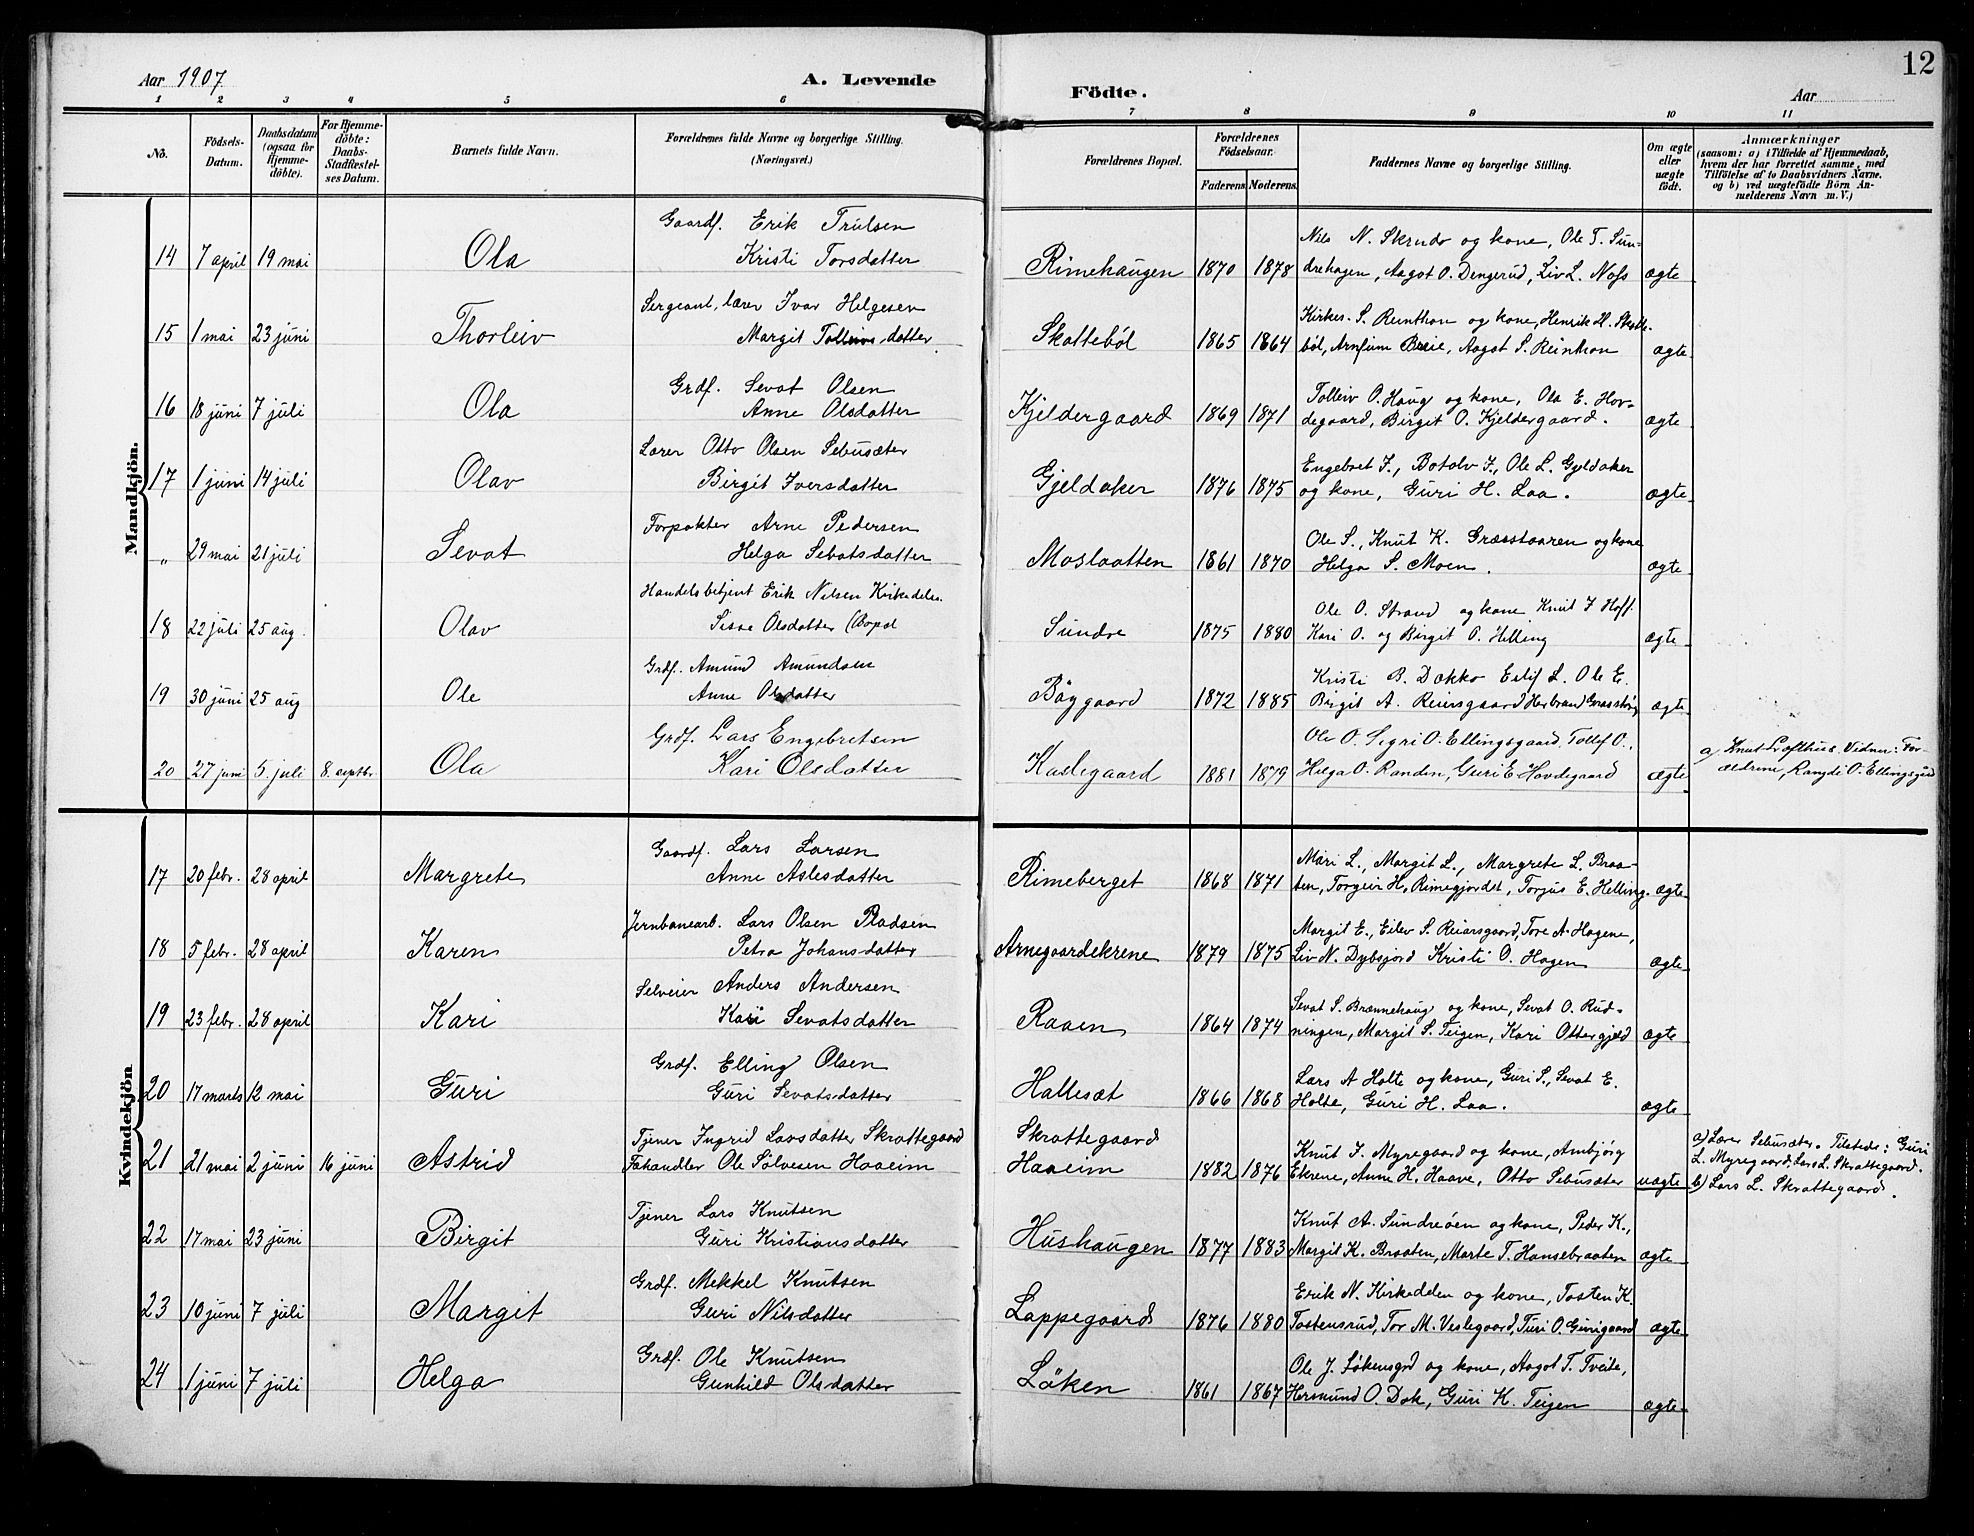 Aar 1907
A. Levende
Födte.
Aar
12
1 2 3 4 5 6 7 8 9 10 11
No.
Födsels-
Datum.
Daabsdatum
(ogsaa for
Hjemme-
döbte).
For Hjemme-
döbte:
Daabs-
Stadfæstel-
ses Datum.
Barnets fulde Navn.
Forældrenes fulde Navne og borgerlige Stilling.
(Næringsvei.)
Forældrenes Bopæl.
Forældrenes
Födselsaar.
Faderens. Moderens.
Faddernes Navne og borgerlige Stilling.
Om ægte
eller
uægte
födt.
Anmærkninger
(saasom: a) i Tilfælde af Hjemmedaab,
hvem der har forrettet samme, med
Tilföielse af to Daabsvidners Navne.
og b) ved uægtefödte Börn An-
melderens Navn m. V.)
Mandkjön.
Gaardf. Erik Trulsen
Nils N. Skrudv og kone, Ole T. Sun-
14 7 april 19 mai Ola Kristi Torsdatter Rimehaugen 1870 1878 drehagen, Aagot O. Dengerud, Liv L. Nofs ægte
Sergeant, lærer Ivar Helgesen
Kirkes. S. Reinton og kone, Henrik H. Skatte-
15 1 mai 23 juni Thorleiv Margit Tolleivsdatter Skattebøl 1865 1864 böl, Arnfinn Breie, Aagot S. Reinton ægte
Grdf. Sevat Olsen
Tolleiv O. Haug og kone, Ola E. Hov-
16 18 juni 7 juli Ola Anne Olsdatter Kjeldergaard 1869 1871 degaard, Birgit O. Kjeldergaard. ægte
Lærer Otto Olsen Sebusæter
Engebret I., Botolv I., Ole L. Gjeldaker
17 1 juni 14 juli Olav Birgit Iversdatter Gjeldaker 1876 1875 og kone, Guri H. Laa. ægte
Forpakter Arne Pedersen
Ole S., Knut K. Græsstaaren og kone
" 29 mai 21 juli Sevat Helga Sevatsdatter Moslaatten 1861 1870 Helga S. Moen. ægte
Handelsbetjent Erik Nilsen Kirkedelen
Ole O. Strand og kone Knut I Hoff
18 22 juli 25 aug. Olav Sisse Olsdatter (Bopæl Sundre 1875 1880 Kari O. og Birgit O. Helling ægte
Grdf. Amund Amundsen
Kristi B. Dokko Eilif L. Ole E.
19 30 juni 25 aug Ole Anne Olsdatter Böygaard 1872 1885 Birgit A. Reiersgaard Herbrand ægte
Grdf. Lars Engebretsen
Ole O. Sigri O. Ellingsgaard, Tollef O.,
a) Knut Lofthus. Vidner: For-
20 27 juni 5. juli 8. septbr. Ola Kari Olsdatter Kaslegaard 1881 1879 Helga O. Randen, Guri E Hovdegaard ægte ældrene, Rangdi O. Ellingsgård
Kvindekjön
Gaardf. Lars Larsen
Mari L., Margit L., Margrete L. Braa-
17 20 febr. 28 april Margrete Anne Aslesdatter Rimeberget 1868 1871 ten, Torgeir H. Rimegjordet, Torjus E. Helling. ægte
Jernbanearb. Lars Olsen Pladsen
Margit E., Eilev S. Reiarsgaard, Tore A. Hagene,
18 5 febr. 28 april Karen Petra Johansdatter Arnegaardekrene 1879 1875 Liv N. Dybsjord Kristi O. Hagen ægte
Selveier Anders Andersen
Sevat S. Brænnehaug og kone, Sevat O. Rud-
19 23 febr. 28 april Kari Kari Sevatsdatter Raaen 1864 1874 ningen, Margit S. Teigen, Kari Ottergjeld ægte
Grdf. Elling Olsen
Lars A Holte og kone, Guri S., Sevat E.
20 17 marts 12 mai Guri Guri Sevatsdatter Hallesæt 1866 1868 Holte, Guri H. Laa. ægte
Tjener Ingrid Larsdatter Skrattegaard Skrattegaard
Knut I. Myregaard og kone, Ambjörg
a) Lærer Sebusæter. Tilstede: Guri
L. Myregaard, Lars L. Skrattegaard.
21 21 mai 2 juni 16 juni Astrid Fæhandler Ole Sölvesen Haaeim Haaeim 1882 1876 Ekrene, Anne H. Haave, Otto Sebusæter uægte b) Lars L. Skrattegaard.
Tjener Lars Knutsen
Knut A. Sundreöen og kone, Peder K.,
22 17 mai 23 juni Birgit Guri Kristiansdatter Hushaugen 1877 1883 Margit K. Braaten, Marte T. Hansebraaten ægte
Grdf. Mekkel Knutsen
Erik N. Kirkedelen og kone, Tosten K.
23 10 juni 7 juli Margit Guri Nilsdatter Lappegaard 1876 1880 Tostensrud, Tor M. Veslegaard, Turi O. Gurigaard ægte
Grdf. Ole Knutsen
Ole J. Lökensgrd og kone, Aagot T. Tveito,
24 1 juni 7 juli Helga Gunhild Olsdatter Löken 1861 1867 Hermund O. Dok, Guri K. Teigen ægte